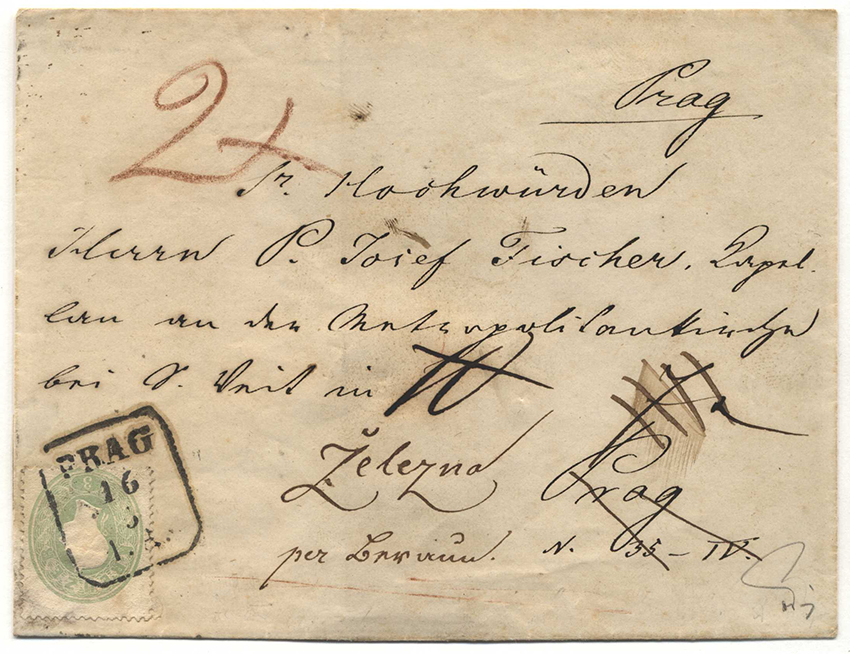 Prag
2
Sr. Hochwürden
Herrn P. Josef Fischer, Kapel-
lan an der Metropolitankirche
bei S. Veit in
Železna Prag
per Beraun. N. 35 – IV.
PRAG
16